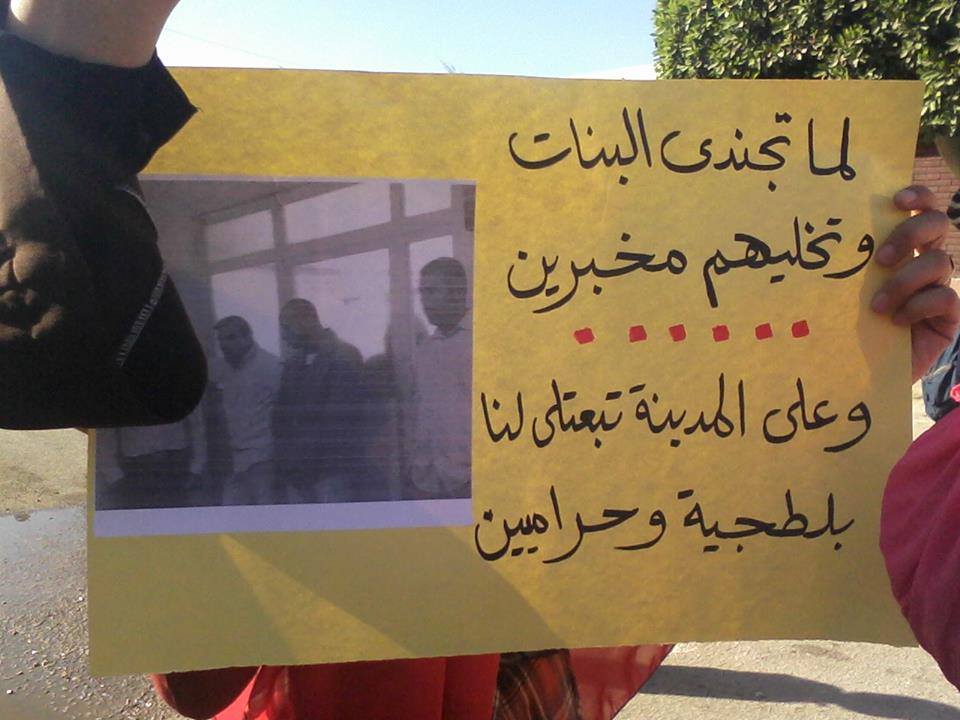 لما تجندى البنات
وتخليهم مخبرين
وعلى المدينة تبعتلى لنا
بلطجية وحراميين